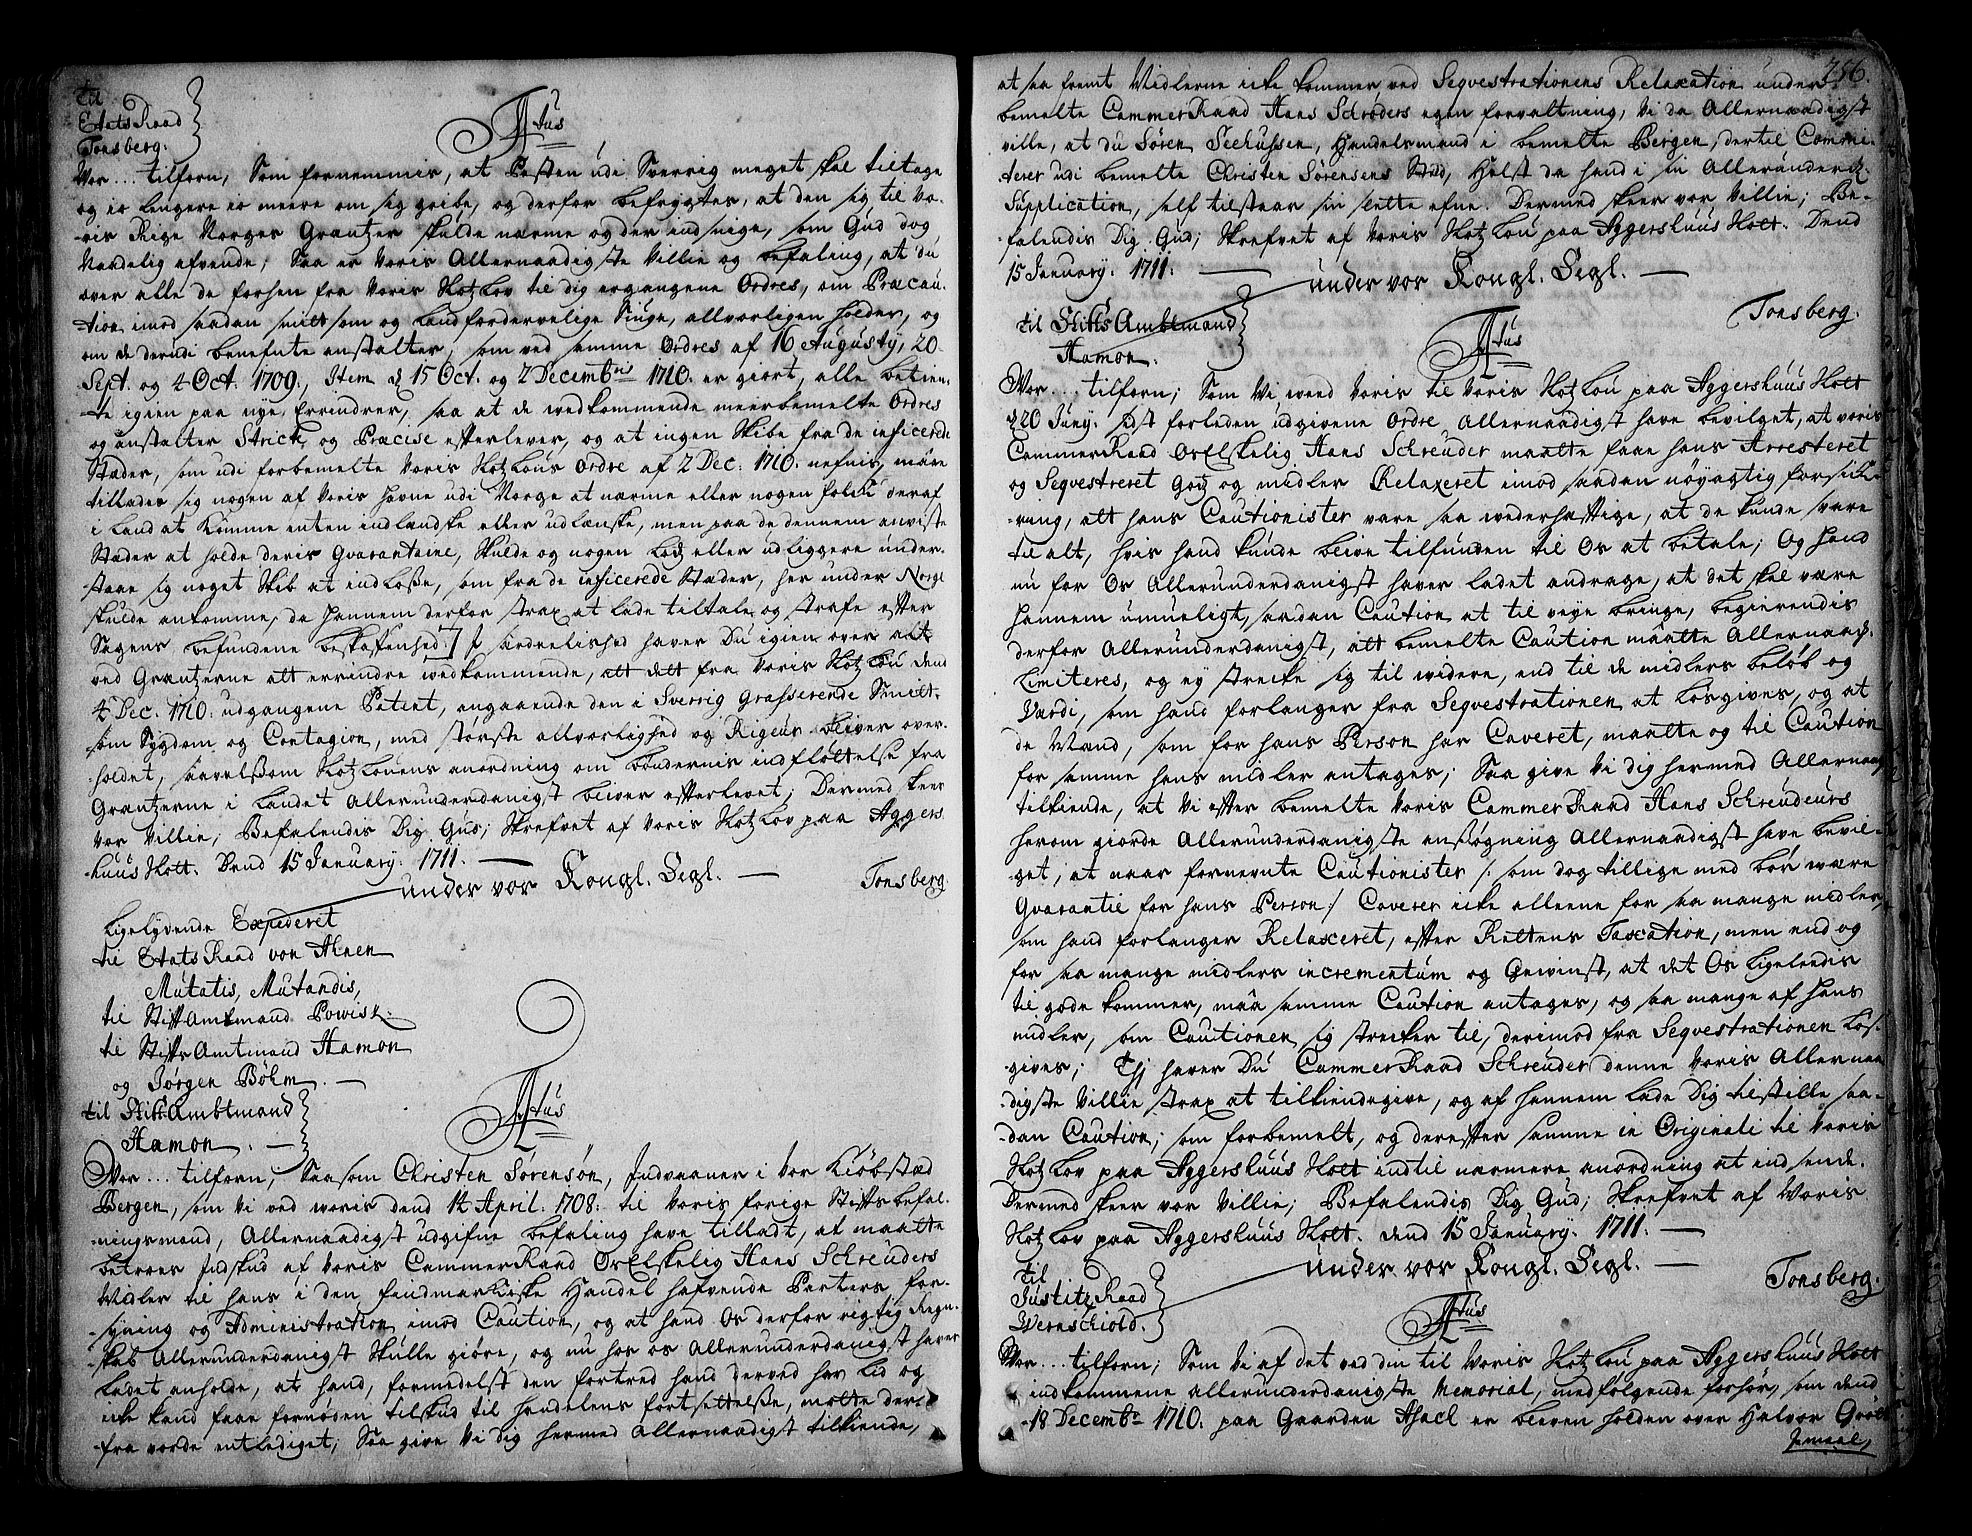 Til
Etats Raad
Tonsberg.
Atus
Vor... tilforn, Som fornemmis, at Pesten udi Sverrig meget skal tiltage
og io lengere io meere om sig gribe, og derfor befrygtes, at den sig til Vo-
ris Rige Norges Grantzer skulde nærme og der indsnige, som Gud dog
Naadelig afvende; Saa er Voris Allernaadigste Villie og befaling, at du
over alle de forhen fra Voris Slotzlov til dig ergangene Ordres, om Præcau-
tion imod saadan smitsom og landfordervelige Siuge, allvorligen holder, og
om de derudi benefnte anstalter, som ved samme Ordres af 16 Augusty, 20
Sept. og 4 Oct. 1709, Item d 15 Oct. og 2 Decembris 1710. er giort, alle betien-
te igien paa nye Errindrer, saa at de vedkommende meerbemelte Ordres
og anstalter Strict og Præcise efterlever, og at ingen Skibe fra de inficerede
Stæder, som udi forbemelte Voris Slotzlovs Ordre af 2 Dec: 1710. nefnis, maae
tillades sig nogen af Voris Havne udi Norge at nærme eller nogen Folck deraf
i Land at komme enten indlandske eller udlænske, men paa de dennem anviste
Stæder at holde deris Qvarantaine, Skulde og nogen Lods eller udliggere under-
staae sig noget Skib at indlodse, som fra de inficerede Stæder, her under Norge
skulde ankomme, da hannem derfor strax at lade tiltale og straffe efter
Sagens befundene beskaffenhed; I særdelished haver Du igien over alt
ved Grantzerne att errindre vedkommende, att dett fra Voris Slotzlov dend
4 Dec. 1710. udgangene Patent, angaaende den i Sverrig Grasserende Smitt-
som Sygdom og Contagion, med største allvorlighed og Rigeur bliver over-
holdet, saavelsom Slotzlovens anordning om bøndernis indfløttelse fra
Grantzerne i Landet Allerunderdanigst bliver efterlevet; Dermed skeer
Vor Villie, Befalendis Dig Gud; Skrefvet af Voris Slotzlov paa Aggers
huus Slott. Dend 15 January. 1711.
under vor Kongl. Segl.
Tonsberg.
Ligelydende Expederet
til Etats Raad von Ahnen
Mutatis, Mutandis,
til Stiftamtmand Powisk.
til Stifts Amtmand Hamon
og Jørgen Bøhm.
til Stifts Ambtmand
Hamon.
Atus
Vor... tilforn, Saasom Christen Sørensøn, Indvaaner i Vor Kiøbstæd
Bergen, som Vi ved voris dend 14 April. 1708. til Voris forige Stiftsbefal-
ningsmand, Allernaadigst udgifne befaling have tilladt, at maatte
betroes Indskud af Voris CammerRaad OsElskelig Hans Schreuders
Midler til hans i den findmarkiske Handel hafvende Parters, for-
syning og Administration imod Caution, og at hand Os derfor rigtig Regn-
skab Allerunderdanigst skulle giøre, og nu hos os Allerunderdanigst haver
ladet anholde, at hand, formedelst den fortred hand derved har lid og
icke kand faae fornøden tilskud til handelens fortsettelse, motte der-
fra vorde entlediget; Saa give Vi dig hermed Allernaadigst tilkiende,
756.
at saa fremt Midlerne icke kommer ved Seqvestrationens Relaxation under
bemelte CammerRaad Hans Schrøders egen forvaltning, Vi da Allernaadigst
ville, at du Søren Seehussen, Handelsmand i bemelte Bergen, dertil Commi-
terer udi bemelte Christen Sørensens Stæd, Helst da hand i sin Allerunderd.
Supplication, self tilstaar sin slette efne. Dermed skeer vor Villie; Be-
falendis Dig Gud; Skrefvet af Voris Slotzlov paa Aggershuus Slott. Dend
15 January. 1711.
under vor Kongl. Segl.
Tonsberg.
til Stifts Ambtmand
Hamon.
Atus
Vor... tilforn; Som Vi wed Voris til Voris Slotzlov paa Aggershuus Slott
d 20 Juny. sidst forleden udgivene Ordre Allernaadigst have bevilget, at voris
CammerRaad OsElskelig Hans Schreuder maatte faae hans Arresteret
og Seqvestreret Gods og midler Relaxeret imod saadan nøyagtig forsik-
ring, att hans Cautionister vare saa wederhæftige, at de kunde svare
til alt, hvis hand kunde blive tilfunden til Os at betale; Og hand
nu for Os Allerunderdanigst haver ladet andrage, at det skal være
hannem umueligt, saadan Caution at til veye bringe, begierendis
derfor Allerunderdanigst, att bemelte Caution maatte Allernaad.
Limiteres, og ey strecke sig til widere, end til de midlers beløb og
Værdi, som hand forlanger fra Seqvestrationen at løsgives, og at
de Mænd, som for hans Person har Caveret, maatte og til Caution
for samme hans midler antages; Saa give Vi dig hermed Allernaad
tilkiende, at Vi efter bemelte Voris CammerRaad Hans Schreuders
herom giorde Allerunderdanigste ansøgning Allernaadigst have bevil-
get, at naar fornevnte Cautionister /: som dog tillige med bør være
Qvarantie for hans Person:/ Caverer icke alleene for saa mange midler,
som hand forlanger Relaxeret, efter Rettens Taxation, men end og
for saa mange midlers incrementum og Gewinst, at det Os ligeledis
til gode kommer, maa samme Caution antages, og saa mange af hans
midler, som Cautionen sig strecker til, derimod fra Seqvestrationen løs-
gives; Thj haver Du CammerRaad Schreuder denne Voris Allernaa-
digste Villie strax at tilkiendegive, og af hannem lade Dig tilstille saa-
dan Caution, som forbemelt, og derefter samme in Originali til Voris
Slotzlov paa Aggershuus Slott indtil nærmere anordning at indsende.
Dermed skeer vor Villie; Befalendis Dig Gud; Skrefvet af Voris
Slotzlov paa Aggershuus Slott. dend 15 January. 1711.
under vor Kongl. Segl.
Tonsberg.
til
Justitz Raad
Wernschiold.
Atus
Vor... tilforn; Som Vi af det ved din til Voris Slotzlov paa Aggershuus Slott
indkommene allerunderdanigste Memorial, medfølgende forhør, som dend
18 Decembr 1710. paa Gaarden Aaell er bleven holden over Halvor